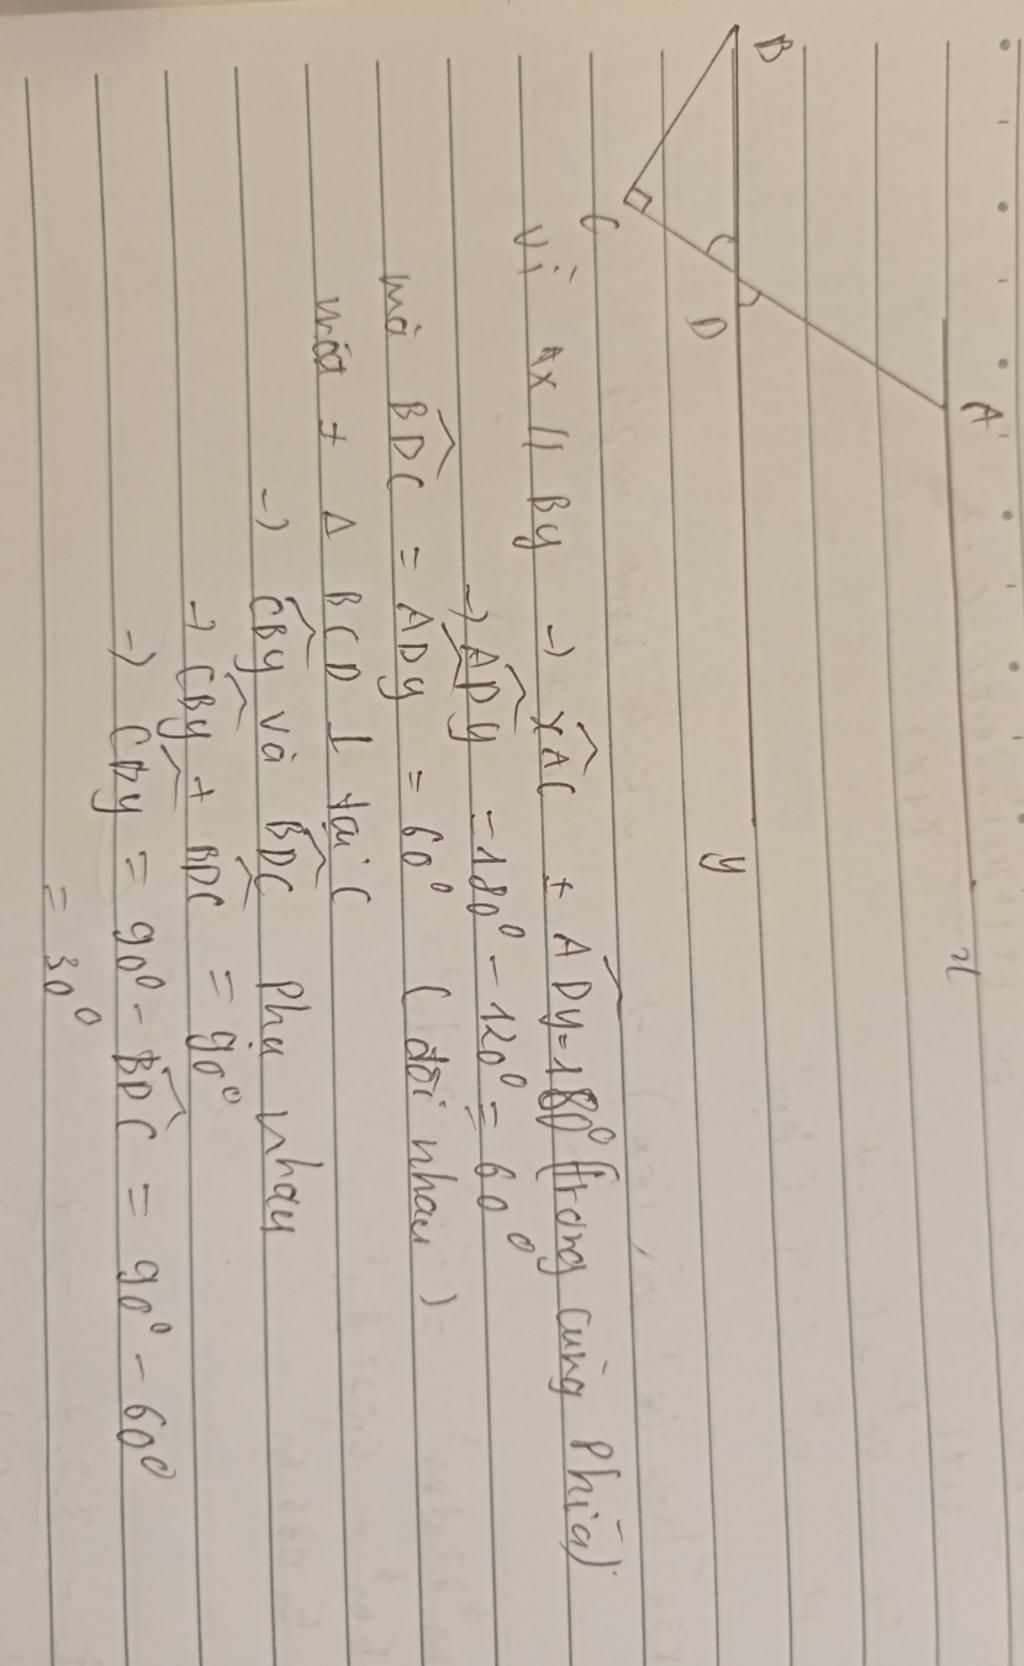 A
x
B
D
y
C
Vì Ax // By → xAC + ADy = 180° (trong cùng phía)
→ ADy = 180° - 120° = 60°
mà BDC = ADy = 60° (đối nhau)
+ Δ BCD ⊥ tại C
→ CBy và BDC phụ nhau
→ CBy + BDC = 90°
→ CBy = 90° - BDC = 90° - 60°
= 30°